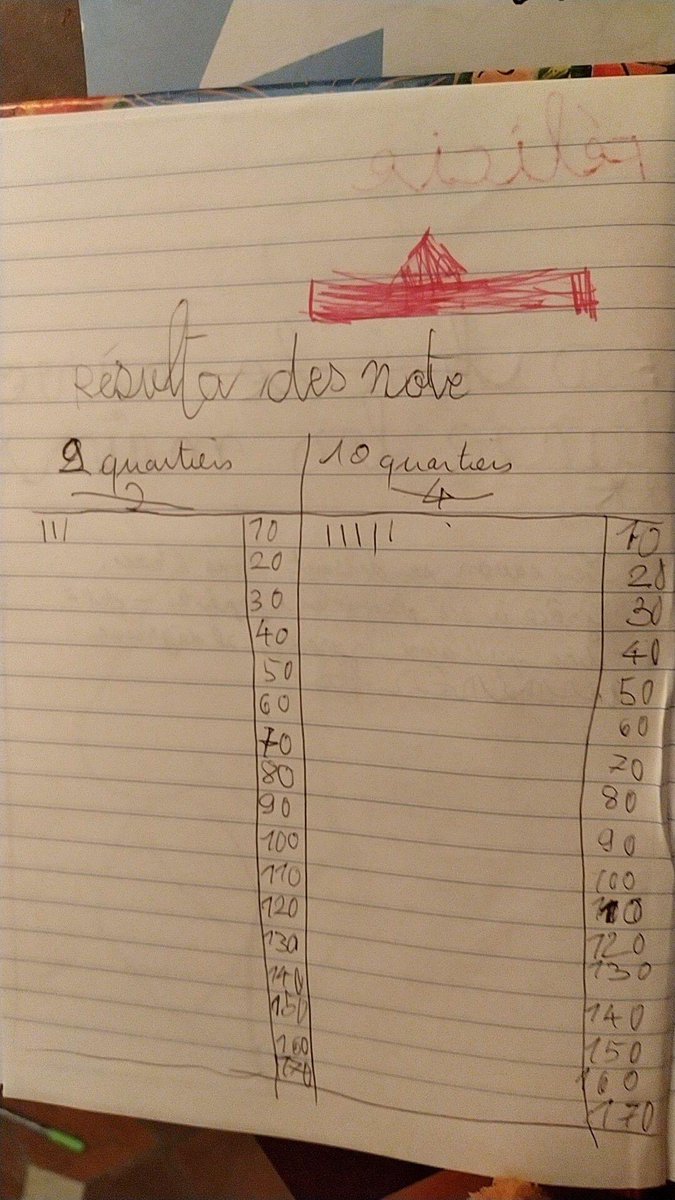 Félicie
résulta des note
9 quartiers 10 quartiers
2 4
||| 10 |||||| 10
20 20
30 30
40 40
50 50
60 60
70 70
80 80
90 90
100 100
110 110
120 120
130 130
140 140
150 150
160 160
170 170